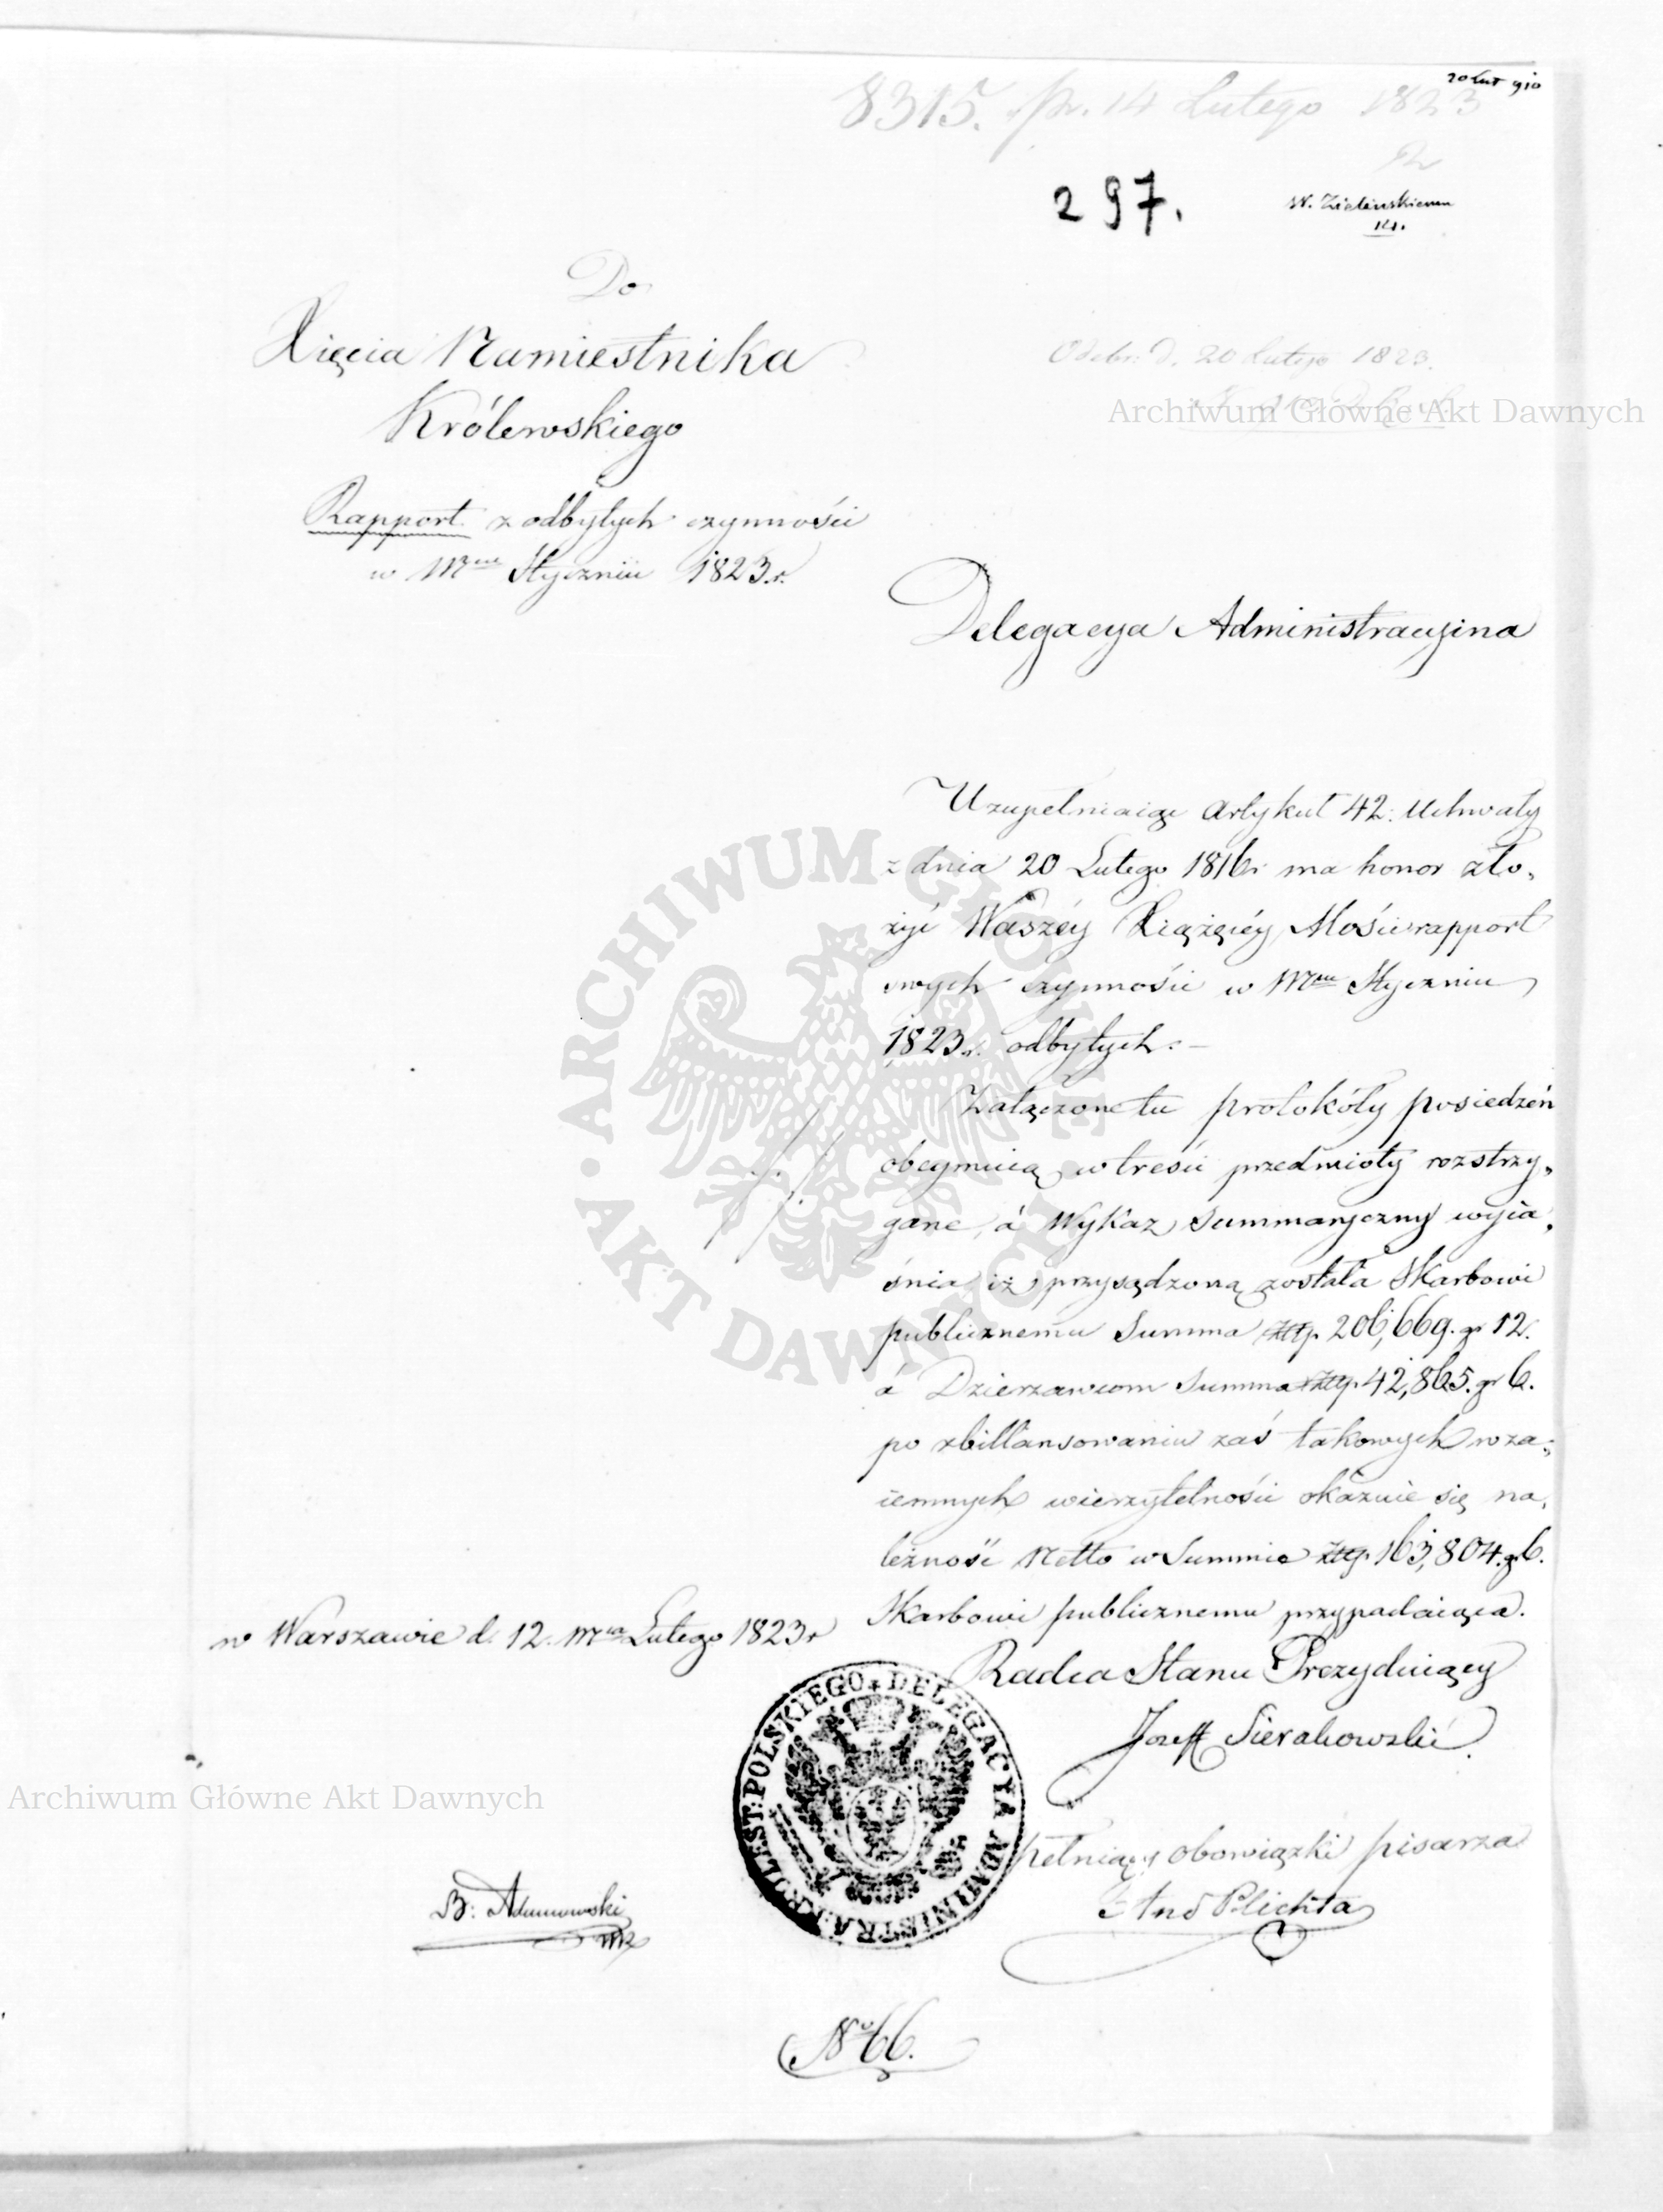 20 Lut 910
8315. pr. 14 Lutego 1823
297.
W. Zielinskiemu
Do
Xięcia Namiestnika
Królewskiego
Odebr: d. 20 Lutego 1823.
Rapport z odbytych czynności
w Mcu Styczniu 1823 r.
Delegacya Administracyina
Uzupełniaiąc Artykuł 42. Uchwały
z dnia 20 Lutego 1816 r ma honor zło„
żyć Waszéy Xiążęcéy Mości rapport
swych czynności w Mcu Styczniu
1823 r. odbytych. –
Załączone tu protokóły posiedzeń
obeymuią w treści przedmioty rozstrzy„
gane, á Wykaz Summaryczny wyia„
śnia iż przysądzoną została Skarbowi
publicznemu Summa Złtp. 206,669. gr 12.
á Dzierzawcom Summa Złtp. 42,865. gr 6.
po zbillansowaniu zaś takowych wza„
iemnych wierzytelności okazuie się na„
leżność Netto w Summie Złtp. 163,804. gr 6.
Skarbowi publicznemu przypadaiąca.
w Warszawie d. 12. Mca Lutego 1823 r
Radca Stanu Prezyduiący
Józeff Sierakowski
KRÓLEST: POLSKIEGO * DELEGACYA ADMINISTRA:
pełniący obowiązki pisarza
And Plichta
B: Adamowski
No 66.
Archiwum Główne Akt Dawnych
• ARCHIWUM GŁÓWNE • AKT DAWNYCH
Archiwum Główne Akt Dawnych